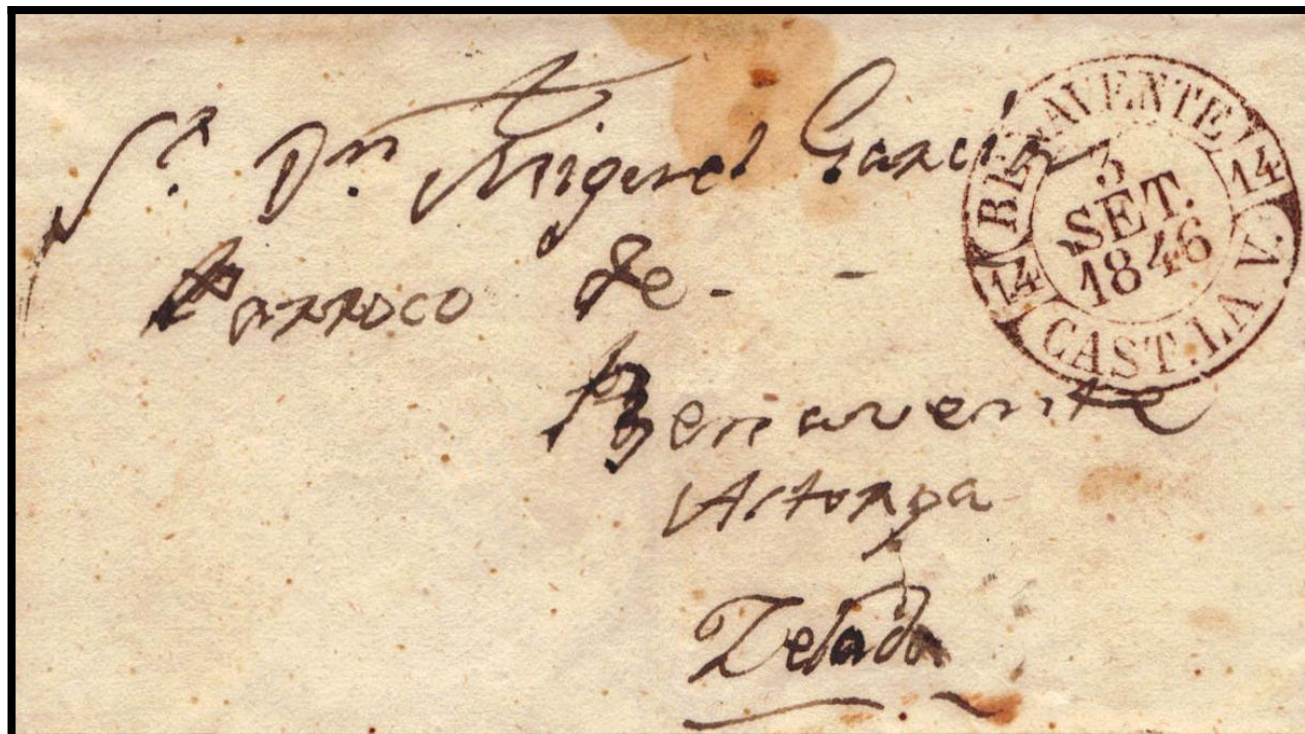 Sr. Dn. Miguel García
Parroco de -  -
Benavente
Astorga
Zelada
BENAVENTE
14
14
3
SET.
1846
CAST. LA V.